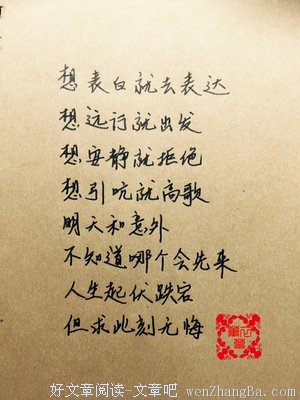 想表白就去表达
想远行就出发
想安静就拒绝
想引吭就高歌
明天和意外
不知道哪个会先来
人生起伏跌宕
但求此刻无悔
好文章阅读-文章吧 wenZhangBa.com